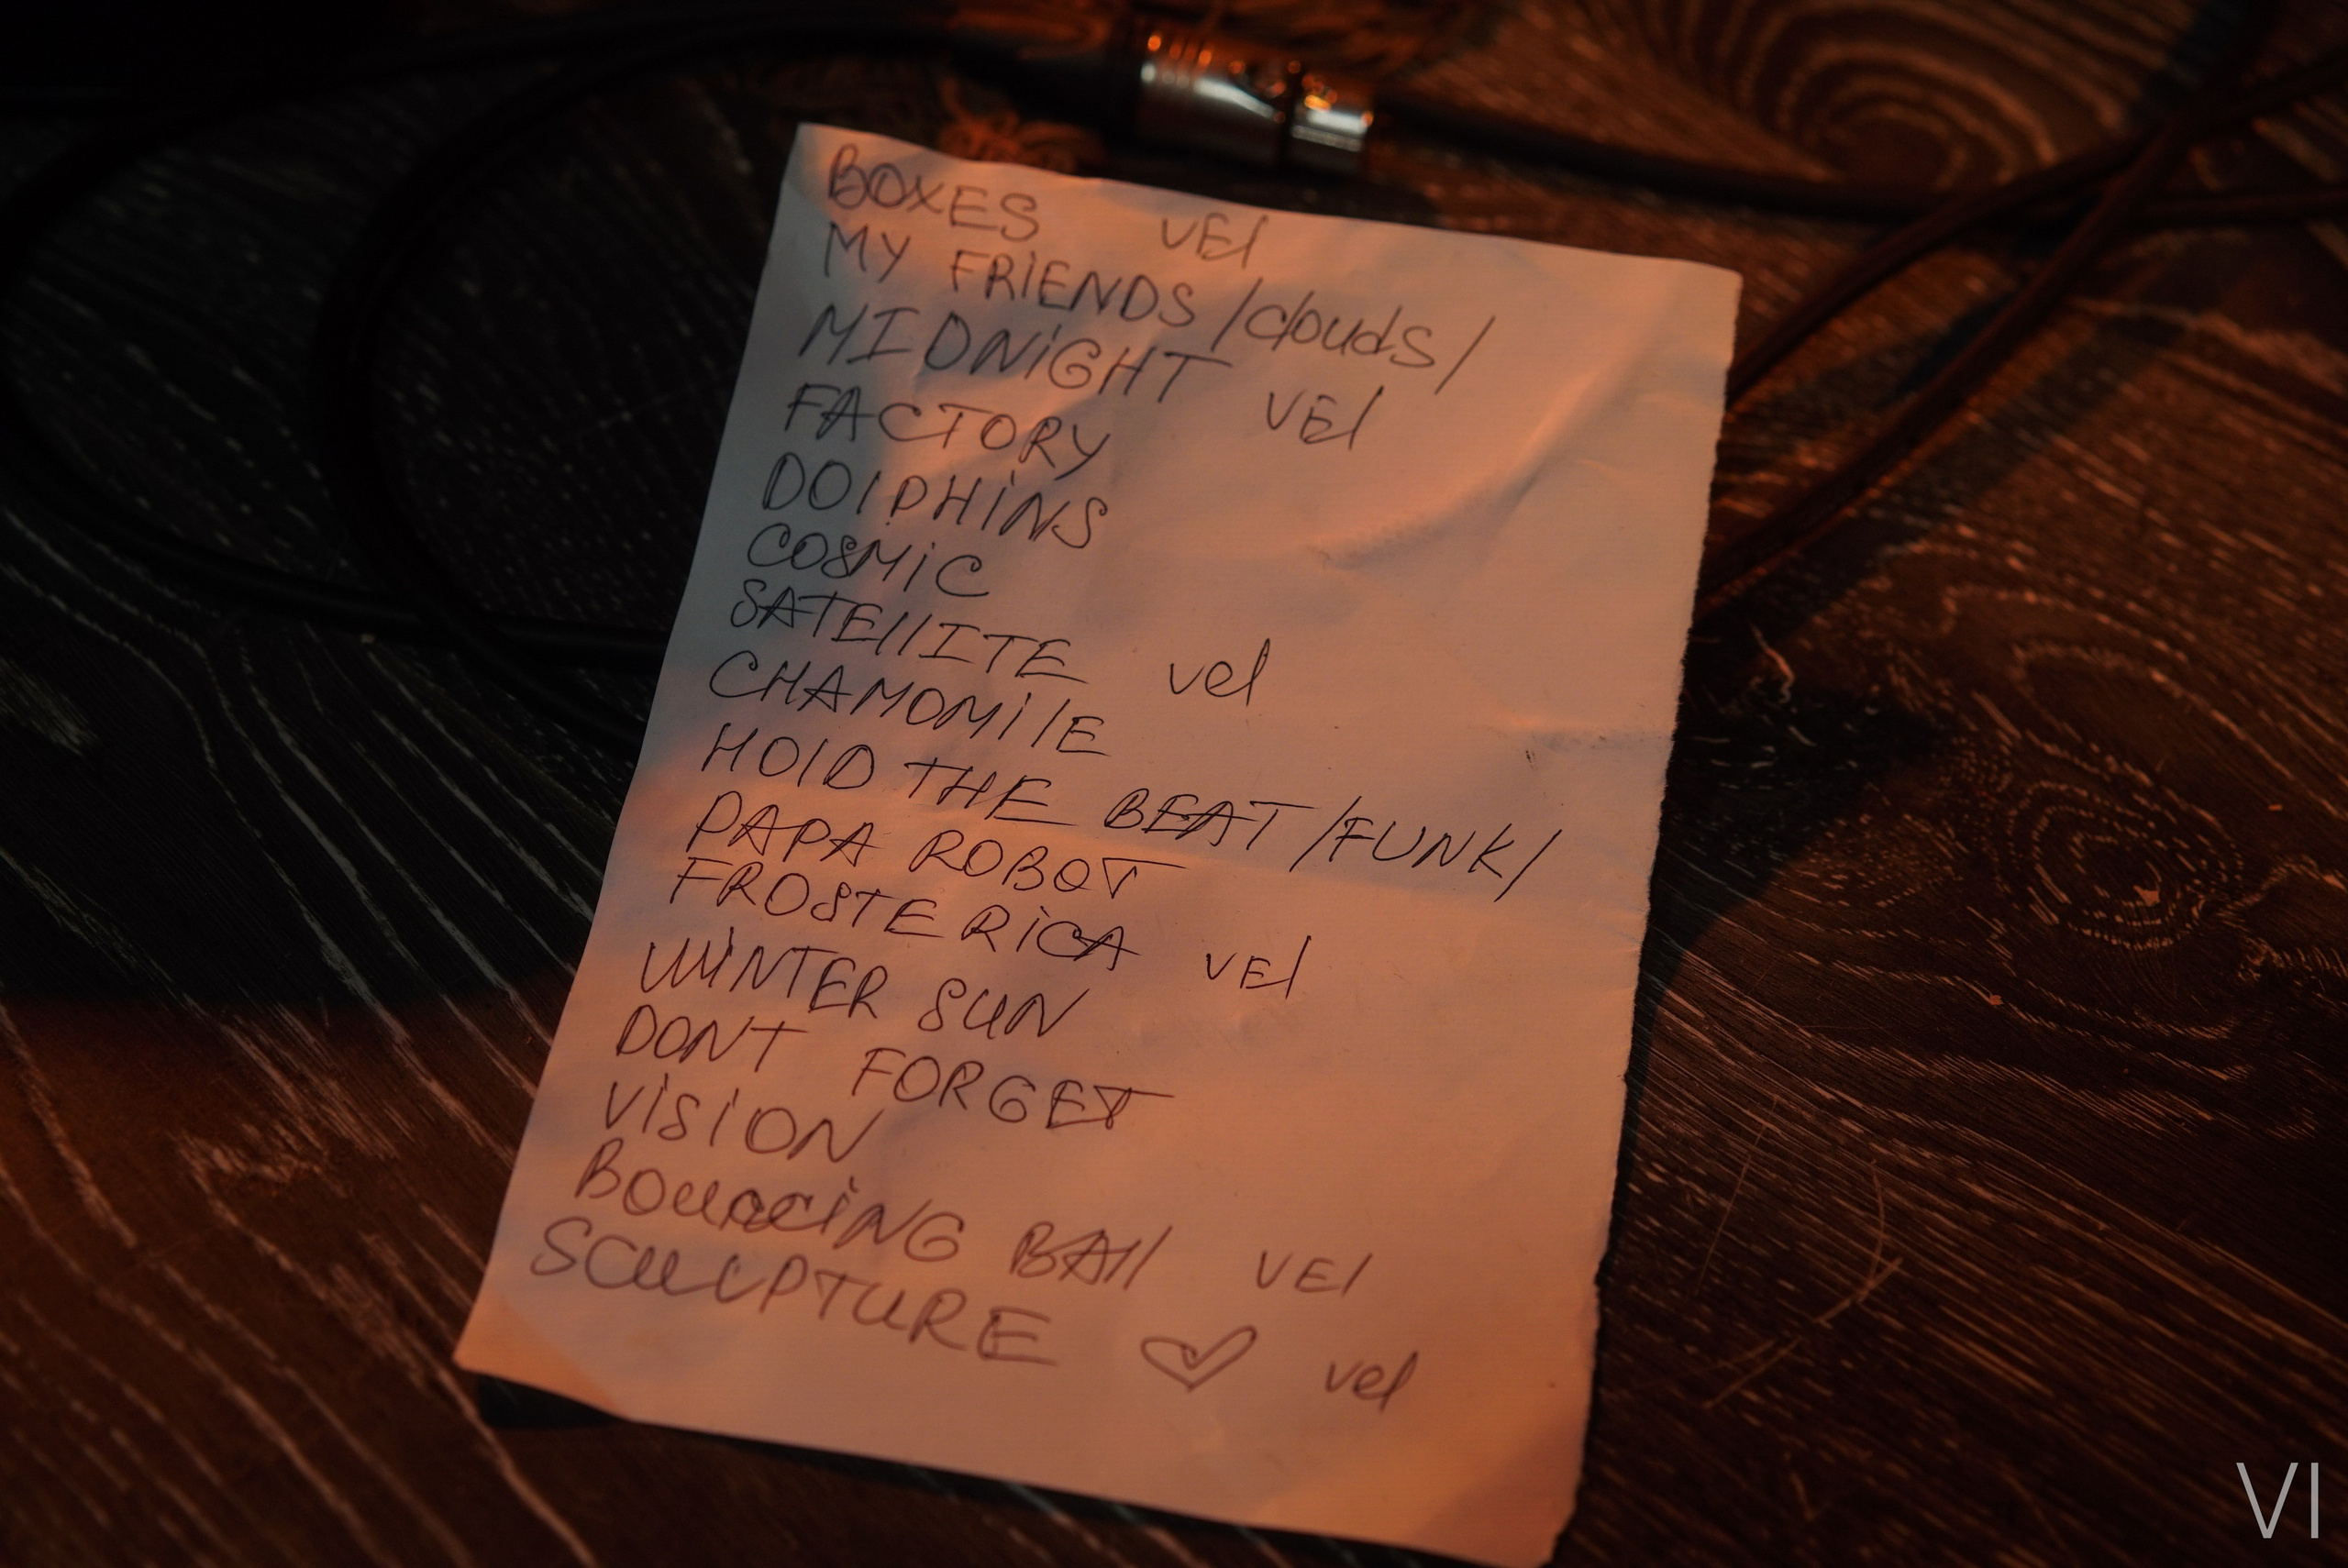 BOXES VEl
MY FRiENDS /clouds/
MIDNiGHT VEl
FACTORY
DOlPHiNS
COSMiC
SATEllITE vel
CHAMOMilE
HOlD THE BEAT /FUNK/
PAPA ROBOT
FROSTERiCA VEl
WiNTER SUN
DONT FORGET
ViSiON
BOunciNG BAll VEl
SCULPTURE ♡ vel
VI